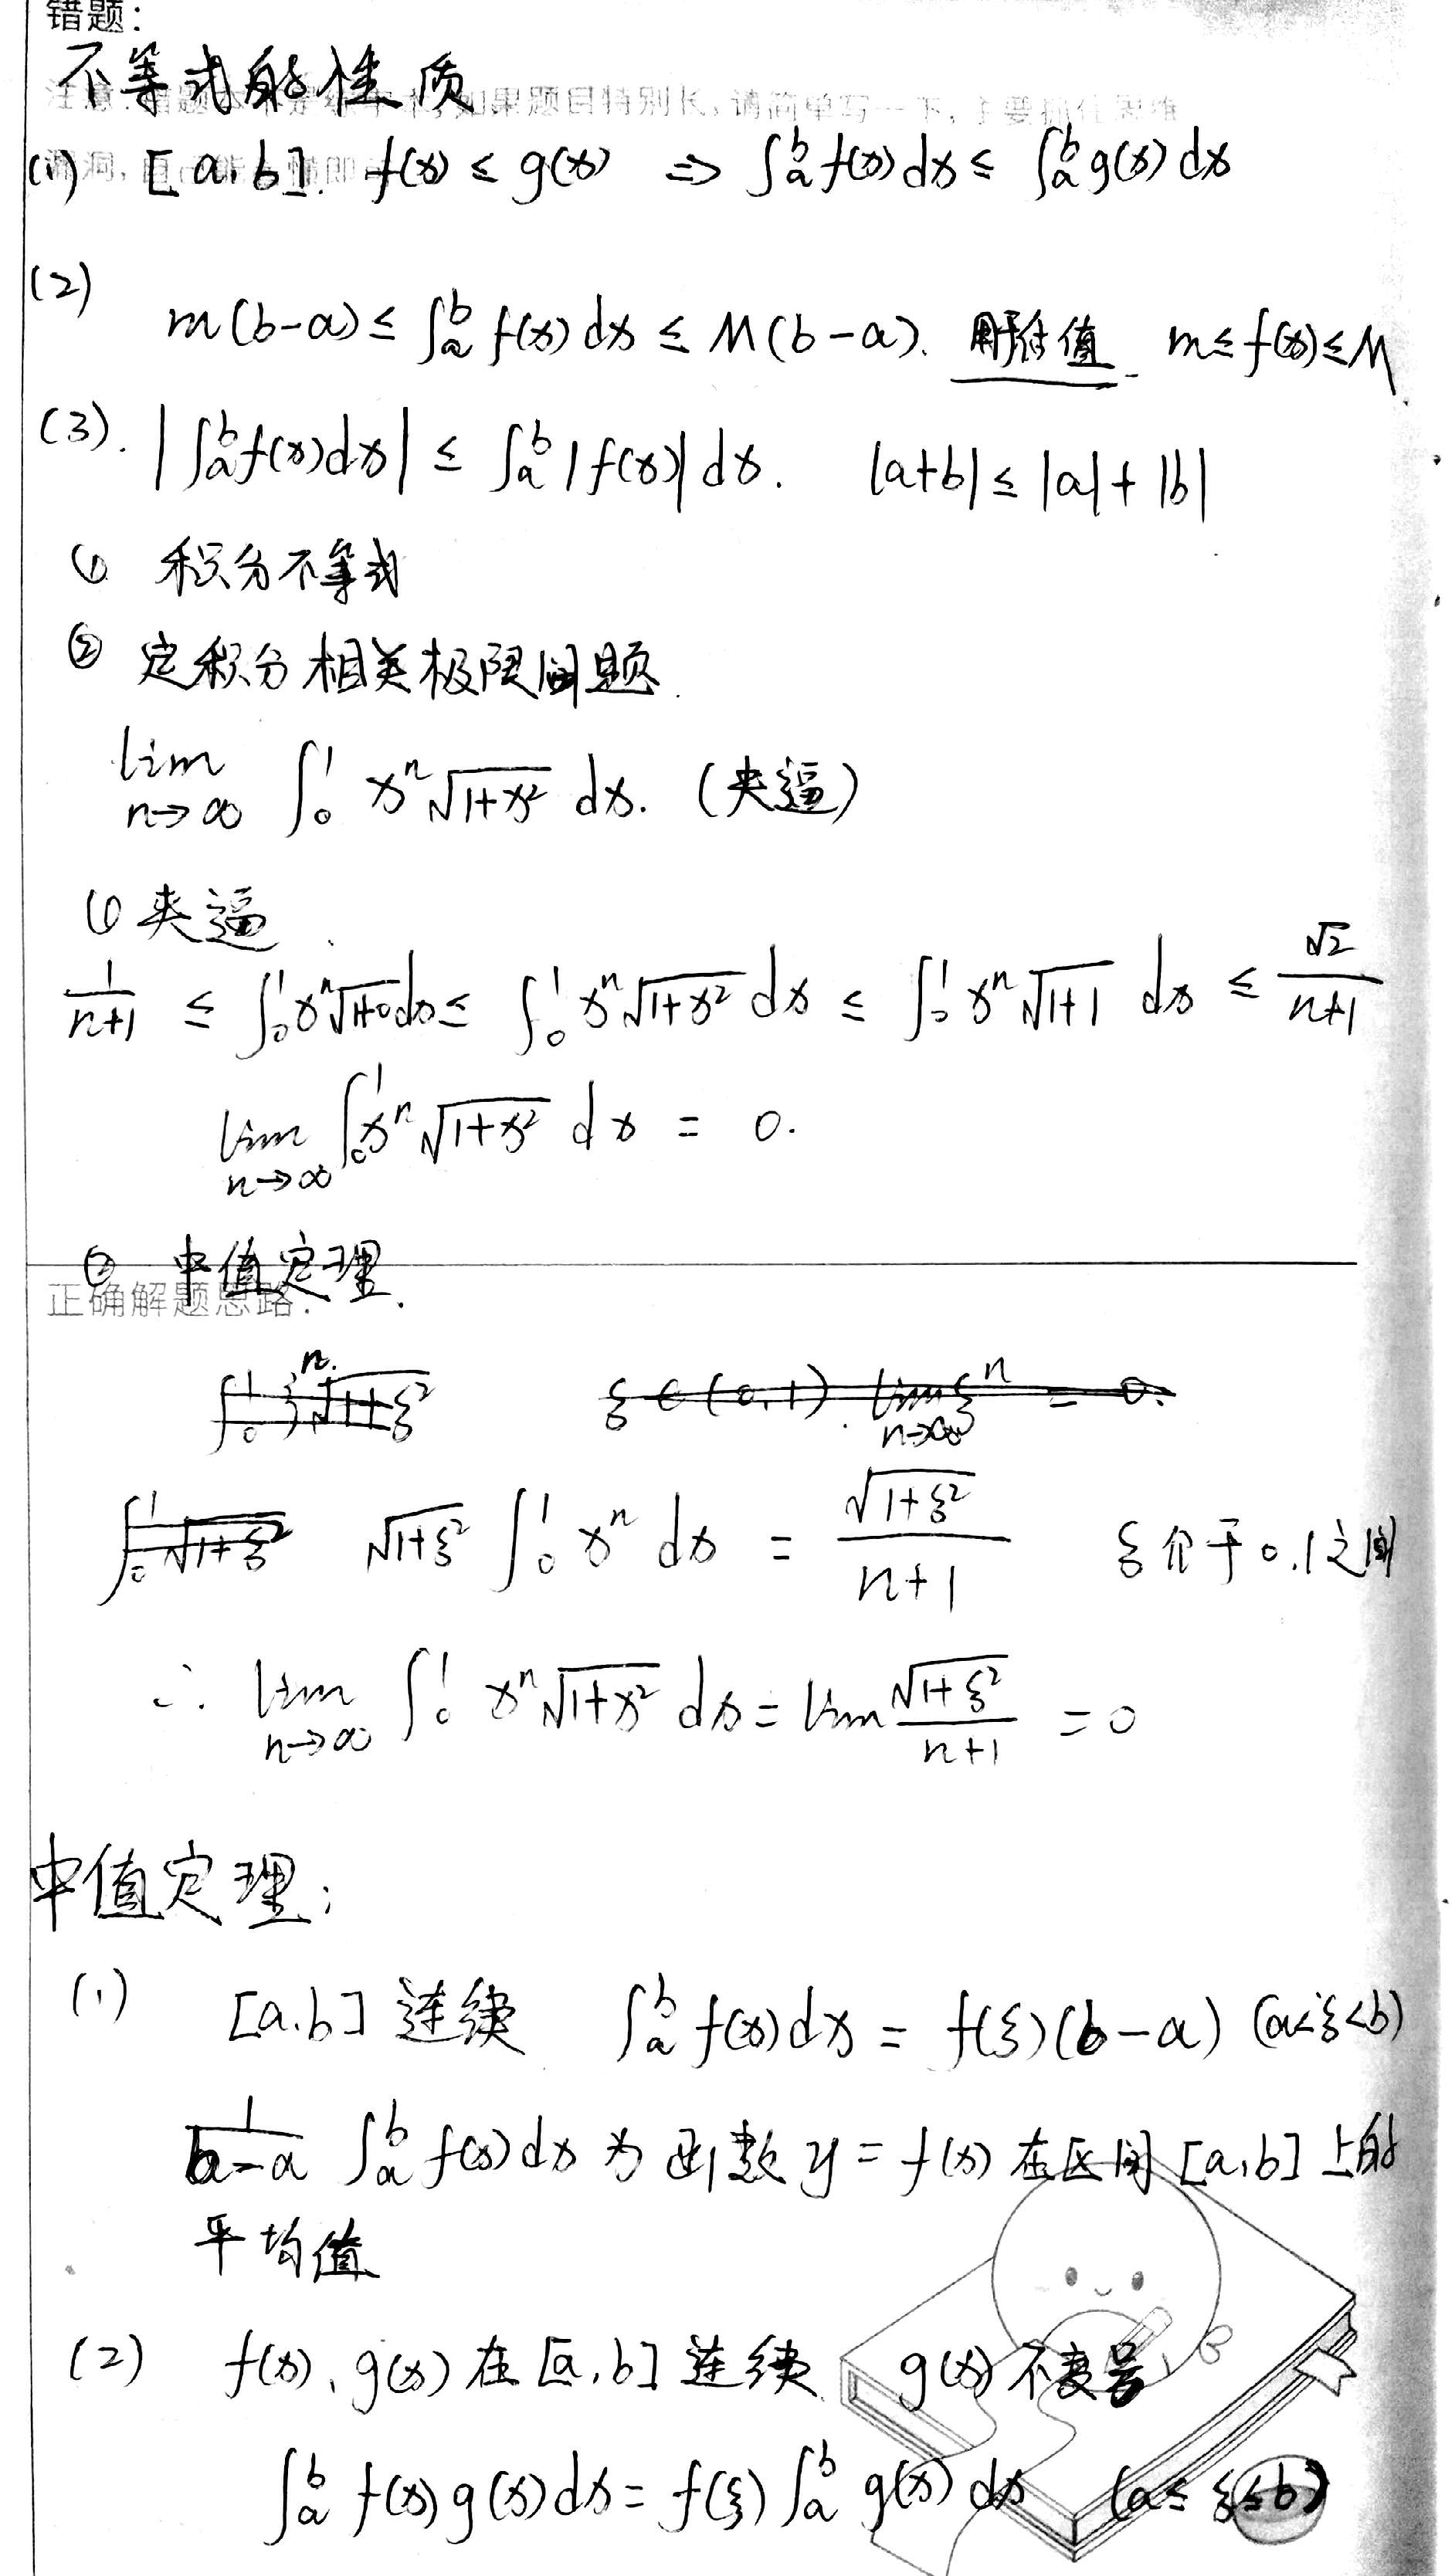 错题：
不等式的性质
注意：错题不是练字本，如果题目特别长，请简单写一下，主要抓住思维
漏洞，自己能看懂即
(1) [a,b]. f(x) ≤ g(x) ⇒ ∫ₐᵇ f(x)dx ≤ ∫ₐᵇ g(x)dx
(2) m(b-a) ≤ ∫ₐᵇ f(x)dx ≤ M(b-a). 用于估值. m≤f(x)≤M
(3). |∫ₐᵇ f(x)dx| ≤ ∫ₐᵇ |f(x)| dx. |a+b| ≤ |a|+|b|
① 积分不等式
② 定积分相关极限问题.
lim n→∞ ∫₀¹ xⁿ√(1+x²) dx. (夹逼)
① 夹逼
1/(n+1) ≤ ∫₀¹ xⁿ√(1+0) dx ≤ ∫₀¹ xⁿ√(1+x²) dx ≤ ∫₀¹ xⁿ√(1+1) dx ≤ √2/(n+1)
lim n→∞ ∫₀¹ xⁿ√(1+x²) dx = 0.
② 中值定理.
正确解题思路：
∫₀¹ ξⁿ√(1+ξ²) ξ∈(0,1). lim n→∞ ξⁿ = 0.
∫₀¹ √(1+ξ²) √(1+ξ²) ∫₀¹ xⁿ dx = √(1+ξ²)/(n+1) ξ介于0,1之间
∴ lim n→∞ ∫₀¹ xⁿ√(1+x²) dx = lim √(1+ξ²)/(n+1) = 0
中值定理：
(1) [a,b] 连续 ∫ₐᵇ f(x)dx = f(ξ)(b-a) (a<ξ<b)
1/(b-a) ∫ₐᵇ f(x)dx 为函数 y=f(x) 在区间 [a,b] 上的
平均值
(2) f(x)、g(x) 在 [a,b] 连续 g(x) 不变号
∫ₐᵇ f(x)g(x)dx = f(ξ) ∫ₐᵇ g(x)dx (a≤ξ≤b)